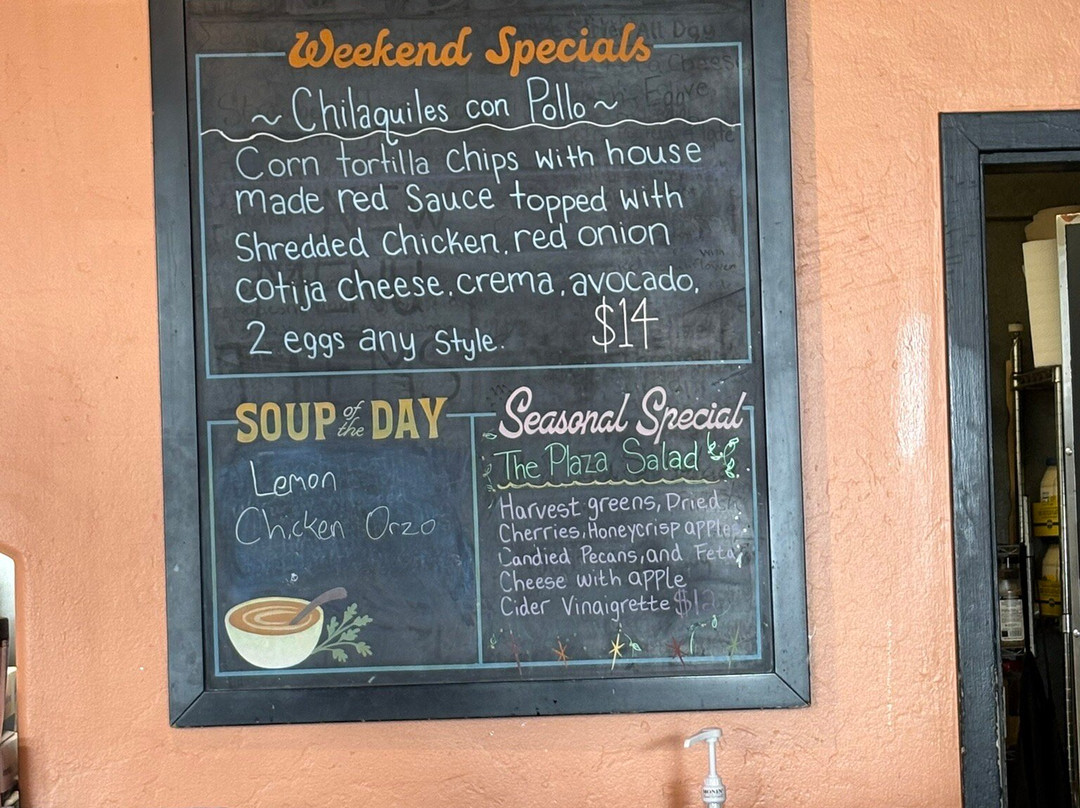 Weekend Specials
~ Chilaquiles con Pollo ~
Corn tortilla chips with house
made red Sauce topped with
Shredded Chicken, red onion
cotija cheese, crema, avocado,
2 eggs any style.
$14
SOUP of the DAY
Lemon
Chicken Orzo
Seasonal Special
The Plaza Salad
Harvest greens, Dried
Cherries, Honeycrisp apples,
Candied Pecans, and Feta
Cheese with apple
Cider Vinaigrette
MONIN